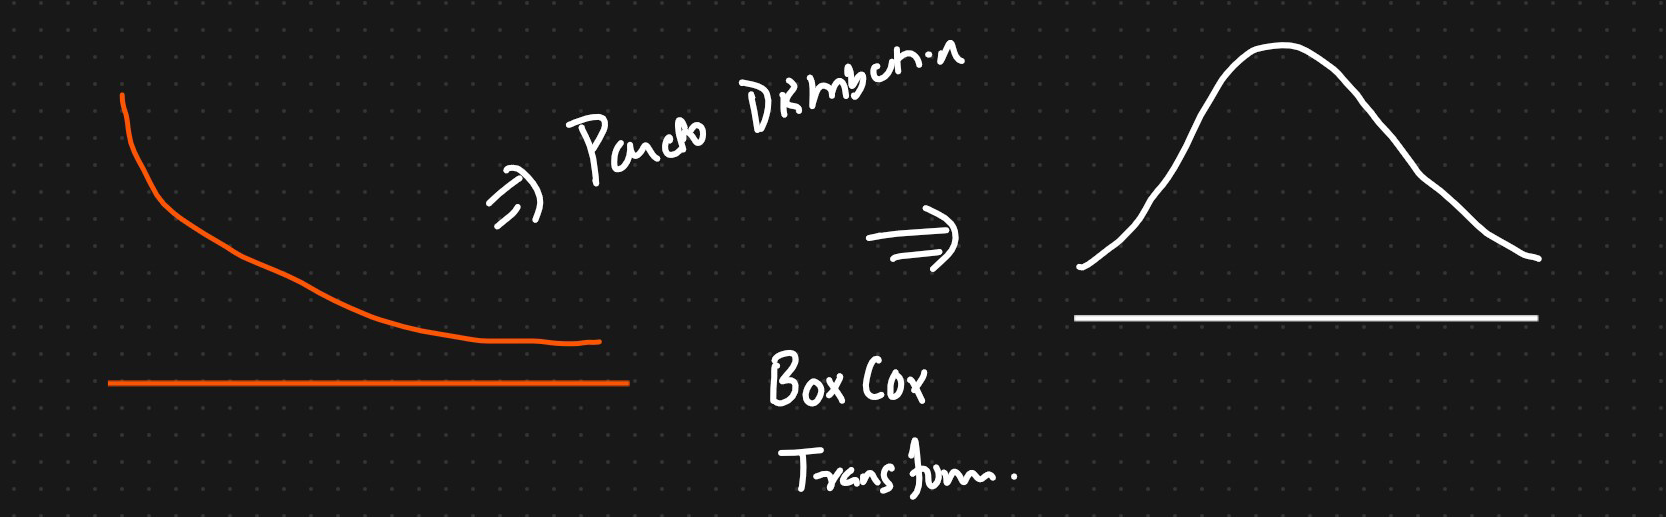 ⇒ Pareto Distribution
⇒
Box Cox
Transform.